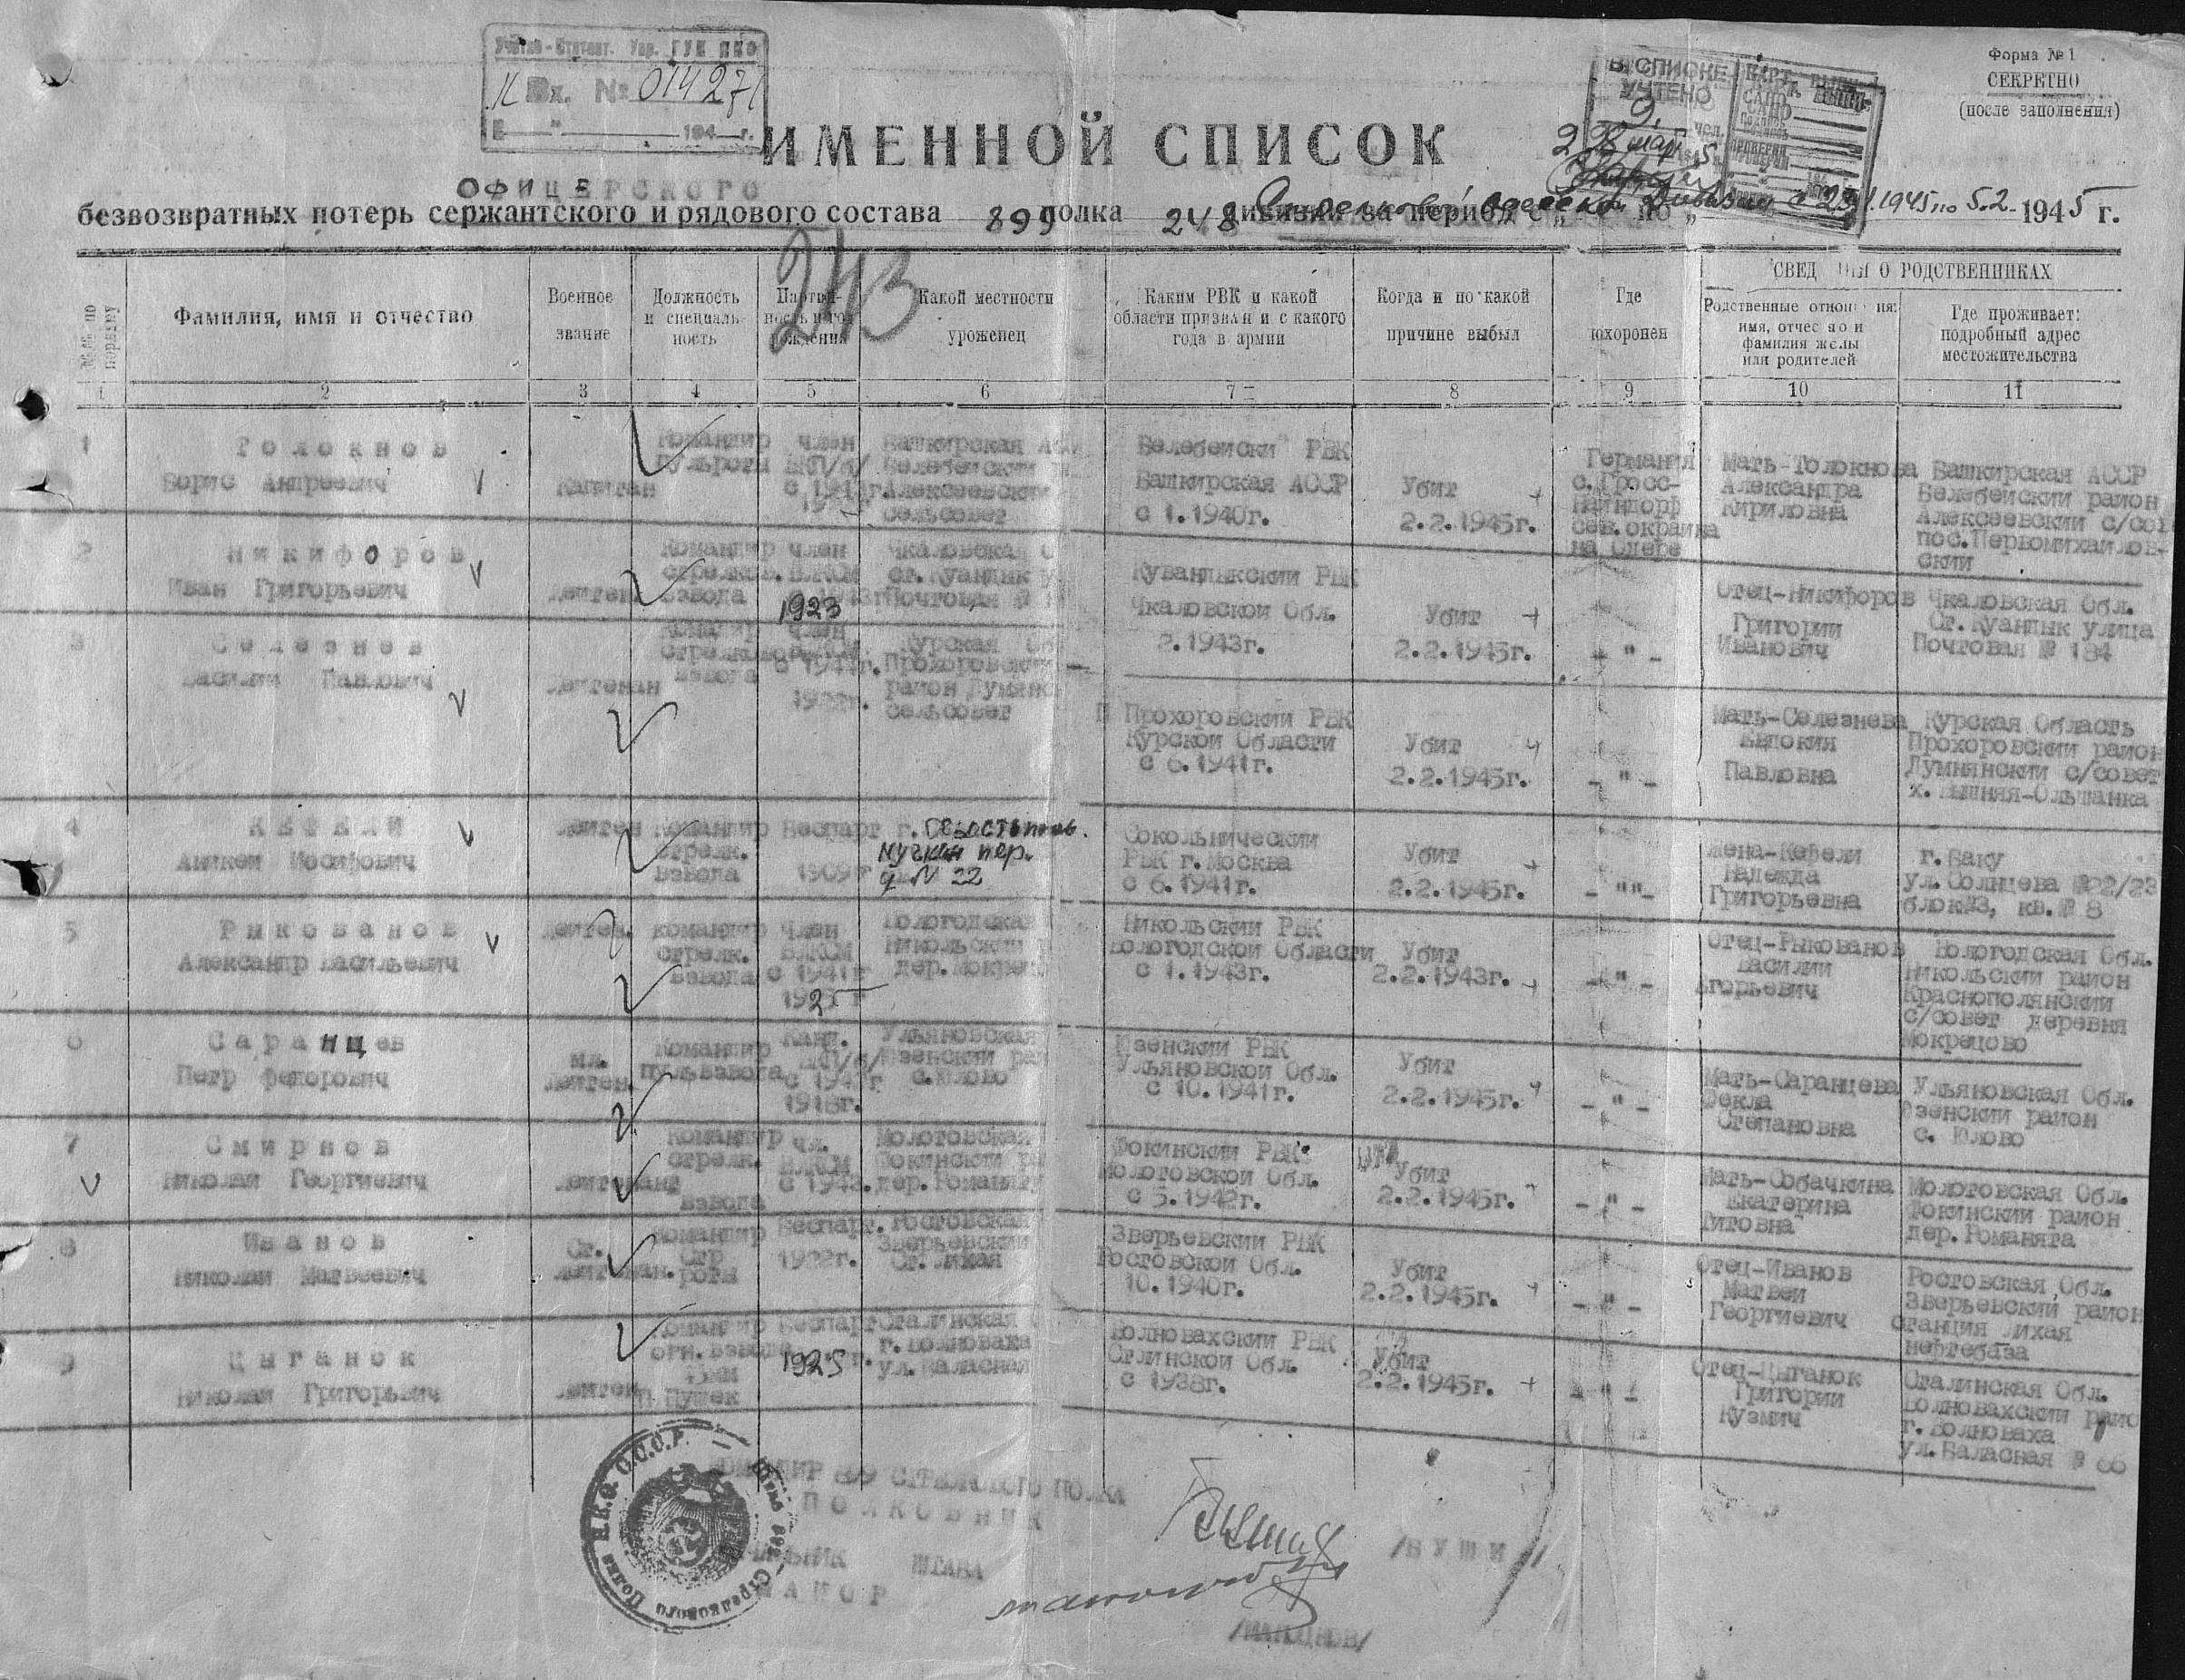 Форма № 1
СЕКРЕТНО
(после заполнения)
Вх. № 014271
194 г.
В СПИСКЕ
УЧТЕНО
9
ИМЕННОЙ СПИСОК
ОФИЦЕРСКОГО
безвозвратных потерь сержантского и рядового состава 899 полка 248 дивизии за период с 1945 по 5.2. 1945 г.
243
№№ по порядку
Фамилия, имя и отчество
Военное звание
Должность и специальность
Партийность и год рождения
Какой местности уроженец
Каким РВК и какой области призван и с какого года в армии
Когда и по какой причине выбыл
Где похоронен
СВЕДЕНИЯ О РОДСТВЕННИКАХ
Родственные отношения: имя, отчество и фамилия жены или родителей
Где проживает: подробный адрес местожительства
1 2 3 4 5 6 7 8 9 10 11
1
Толокнов
Борис Андреевич
Капитан
Командир пульроты
член ВКП/б/
Башкирская
Алексеевский сельсовет
Белебейский РВК
Башкирская АССР
с 1.1940г.
Убит
2.2.1945г.
Германия
с.Гросс-
Нейндорф
сев.окраина
на Одере
Мать-Толокнова
Александра
Кириловна
Башкирская АССР
Белебейский район
Алексеевский с/сов
пос.Первомихайлов-
ский
2
Никифоров
Иван Григорьевич
Лейтен.
Командир
стрелков.
взвода
член
ВЛКСМ
1923
Чкаловская
ст.Куандык
Почтовая №
Кувандыкский РВК
Чкаловской Обл.
2.1943г.
Убит
2.2.1945г.
- " -
Отец-Никифоров
Григорий
Иванович
Чкаловская Обл.
Ст.Куандык улица
Почтовая № 184
3
Селезнев
Василий Павлович
Лейтенан
взвода
член
Курская
Прохоровский
район Думянс
сельсовет
Прохоровский РВК
Курской Области
с 6.1941г.
Убит
2.2.1945г.
- " -
Мать-Селезнева
Евдокия
Павловна
Курская Область
Прохоровский район
Думнянский с/совет
х. Вышняя-Ольшанка
4
КЕФЕЛИ
Аникей Иосифович
Лейтен
Командир
стрелк.
взвода
Беспарт
1909г
г. Севастополь.
пер.
д. № 22
Сокольнический
РВК г.Москва
с 6.1941г.
Убит
2.2.1945г.
- "" -
Жена-Кефели
Надежда
Григорьевна
г.Баку
ул.Солнцева №22/23
кв.№ 8
5
Рыкованов
Александр Васильевич
Лейтен.
командир
стрелк.
взвода
Член
ВЛКСМ
с 1941г
Вологодская
Никольский
дер.Мокрец
Никольский РВК
Вологодской Области
с 1.1943г.
Убит
2.2.1943г.
- " -
Отец-Рыкованов
Василий
Егорьевич
Вологодская Обл.
Никольский район
Краснополянский
с/совет деревня
Мокрецово
6
Саранцев
Петр Федорович
мл.
Лейтен.
Командир
пульвзвода
Канд.
ВКП/б/
1918г.
Ульяновская
Изенский рай
с.Юлово
Изенский РВК
Ульяновской Обл.
с 10.1941г.
Убит
2.2.1945г.
- " -
Мать-Саранцева
Фекла
Степановна
Ульяновская Обл.
Изенский район
с. Юлово
7
Смирнов
Николай Георгиевич
Лейтенант
Командир
стрелк.
взвода
чл.
ВЛКСМ
Молотовская
Фокинский
дер.Романяту
Фокинский РВК
Молотовской Обл.
с 5.1942г.
Убит
2.2.1945г.
- " -
Мать-Собачкина
Екатерина
Титовна
Молотовская Обл.
Фокинский район
дер.Романята
8
Иванов
Николай Матвеевич
Ст.
лейтенан.
Командир
стр
роты
Беспарт.
1922г.
Ростовская
Зверьевский
Ст.Лихая
Зверьевский РВК
Ростовской Обл.
10.1940г.
Убит
2.2.1945г.
- " -
Отец-Иванов
Матвей
Георгиевич
Ростовская Обл.
Зверьевский район
станция Лихая
нефтебаза
9
Цыганок
Николай Григорьвич
Лейтен
Командир
огн.взвода
45мм
П.Пушек
Беспарт
1925
Сталинская
г.Волноваха
ул.Валасная
Волновахский РВК
Стлинской Обл.
с 1938г.
Убит
2.2.1945г.
- " -
Отец-Цыганок
Григорий
Кузмич
Сталинская Обл.
Волновахский райо
г.Волноваха
ул.Валасная №
КОМАНДИР 899 СТРЕЛКОВОГО ПОЛКА
ПОЛКОВНИК
/БУШИН/
НАЧАЛЬНИК ШТАБА
МАЙОР
Н.К.О. С.С.С.Р.
Стрелкового Полка